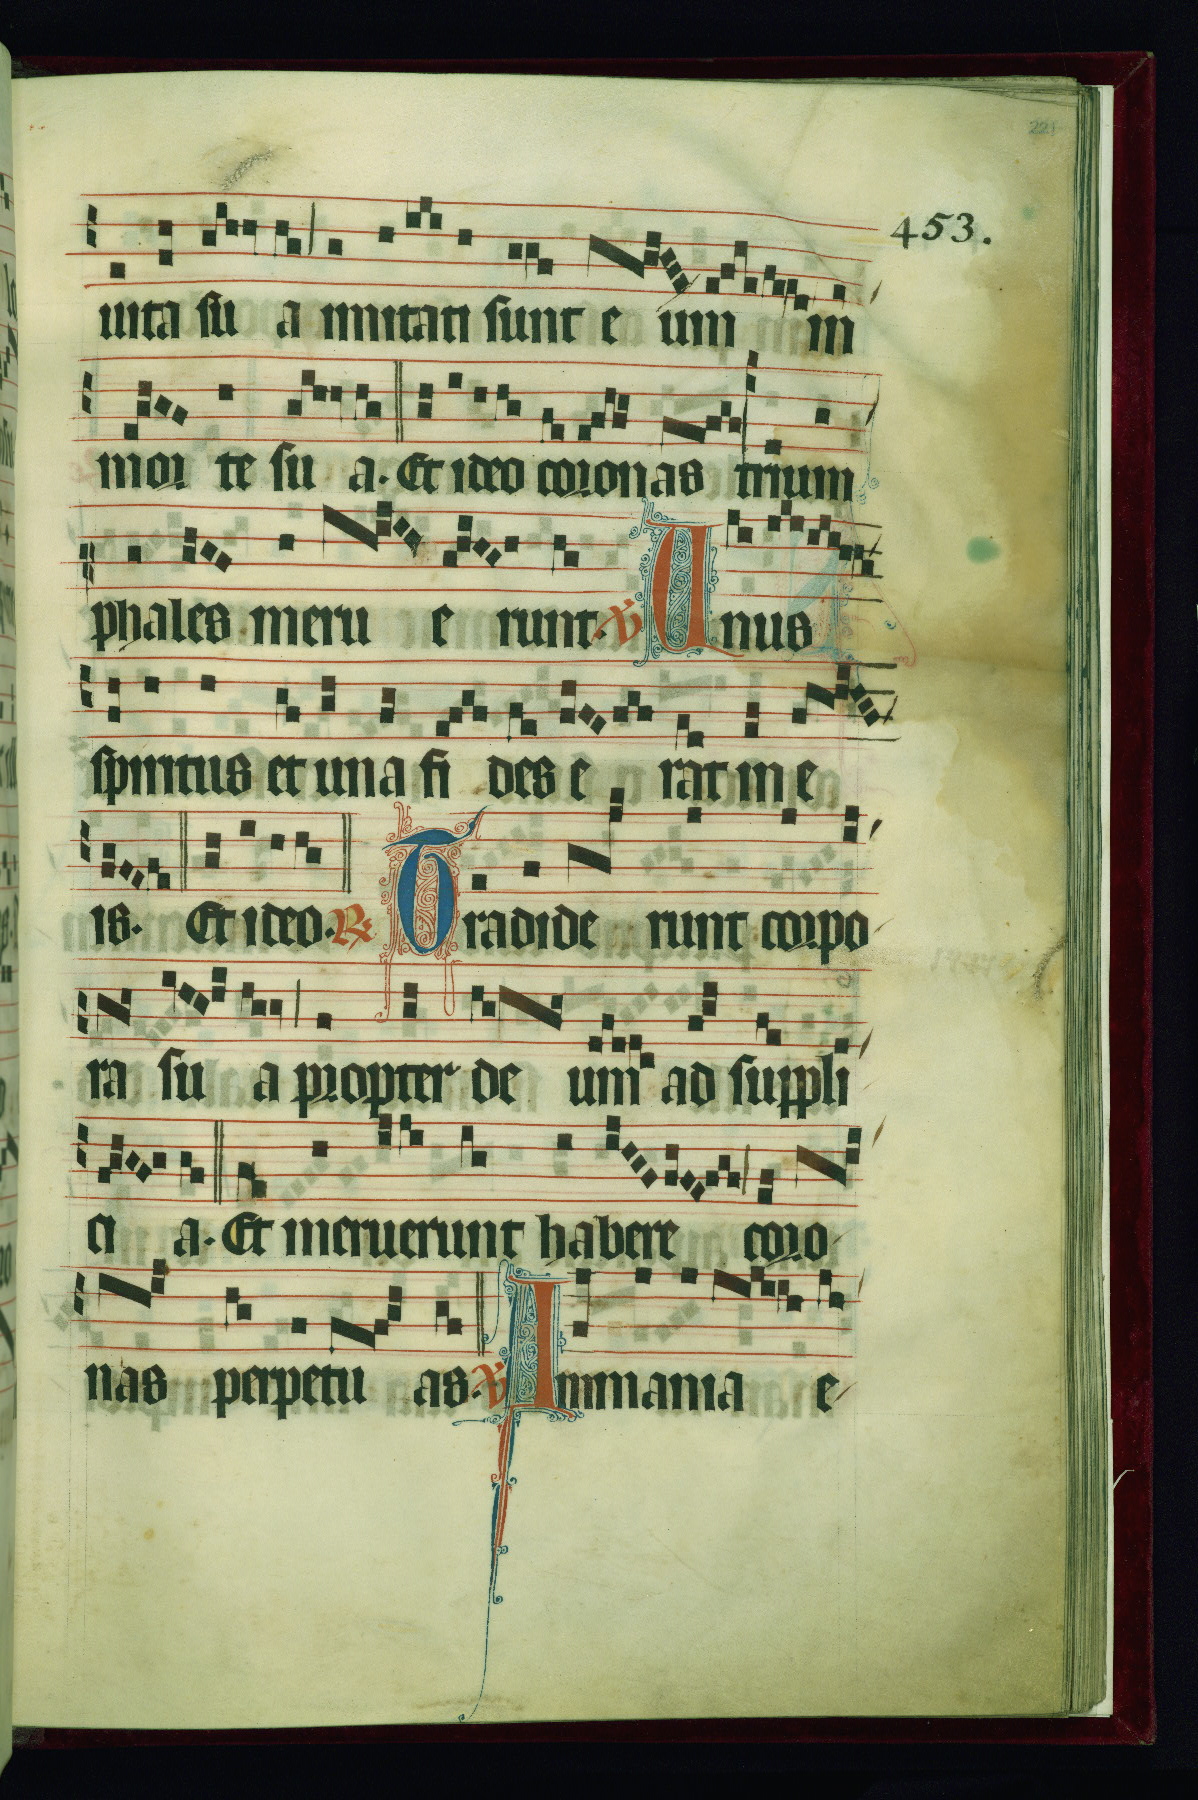 221
453.
uita su a imitati sunt e um in
mor te su a. Et ideo coronas trium
phales meru e runt. V Unus
spiritus et una fi des e rat in e
is. Et ideo. R Tradide runt corpo
ra su a propter de um ad suppli
ci a. Et meruerunt habere coro
nas perpetu as. V Inmania e